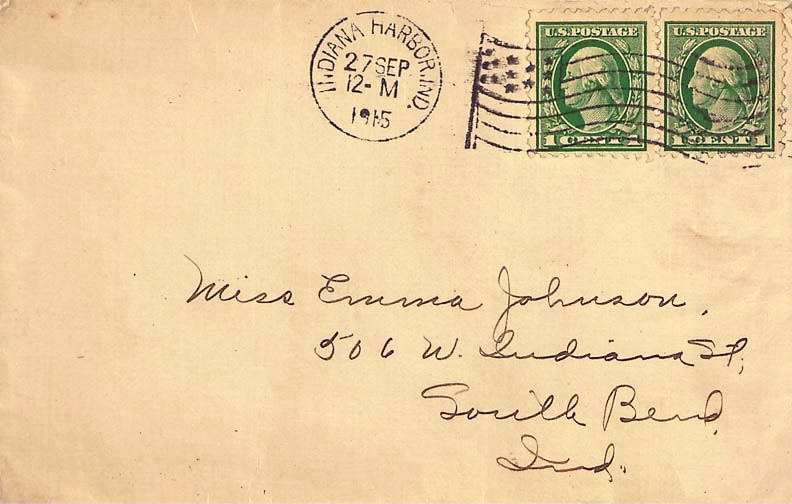 INDIANA HARBOR, IND.
27 SEP
12-M
1915
U.S. POSTAGE
1 CENT 1
U.S. POSTAGE
1 CENT 1
Miss Emma Johnson,
506 W. Indiana St,
South Bend,
Ind.